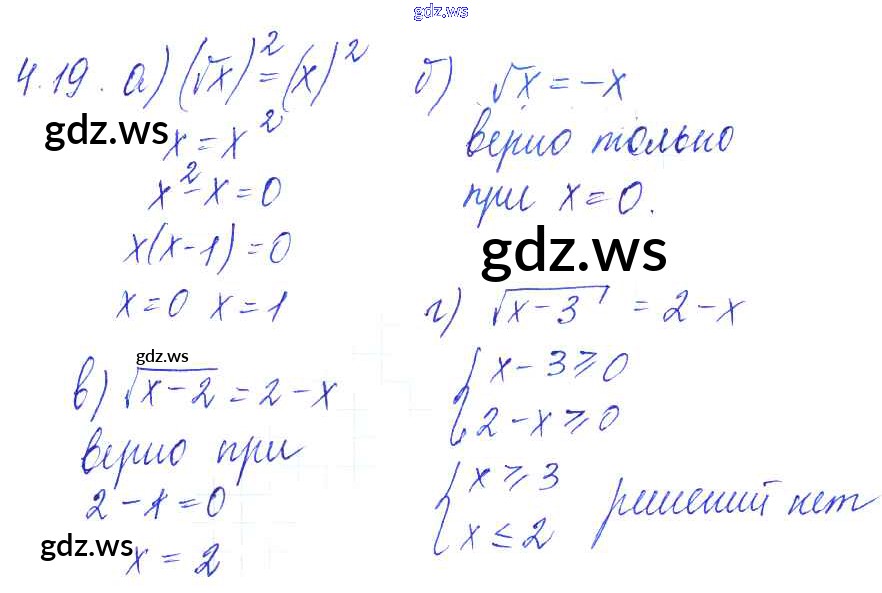 gdz.ws
4.19. а) (√x)² = (x)²
gdz.ws
x = x²
x² - x = 0
x(x-1) = 0
x = 0 x = 1
б) √x = -x
верно только
при x = 0.
gdz.ws
gdz.ws
в) √x-2 = 2-x
верно при
2 - x = 0
gdz.ws
x = 2
г) √x-3 = 2-x
{ x - 3 ⩾ 0
2 - x ⩾ 0
{ x ⩾ 3
x ≤ 2
решений нет